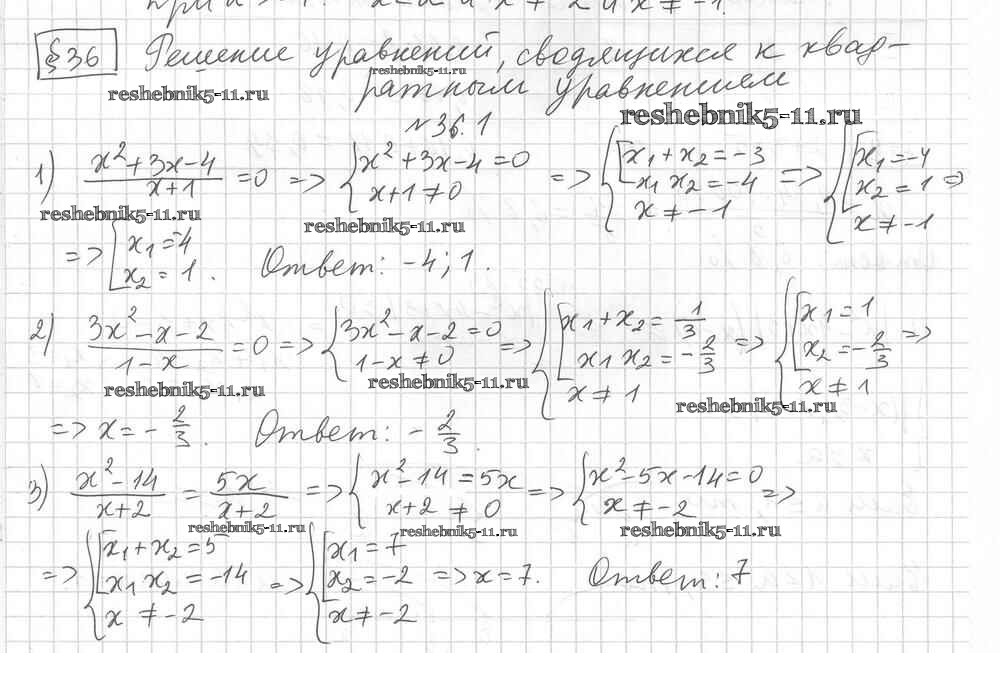 §36 Решение уравнений, сводящихся к квад-
ратным уравнением
reshebnik5-11.ru
reshebnik5-11.ru
reshebnik5-11.ru
№36.1
1) (x² + 3x - 4)/(x+1) = 0 => { x² + 3x - 4 = 0; x+1 ≠ 0 => { [ x₁ + x₂ = -3; x₁ x₂ = -4; x ≠ -1 => { [ x₁ = -4; x₂ = 1; x ≠ -1 =>
reshebnik5-11.ru
reshebnik5-11.ru
=> [ x₁ = -4; x₂ = 1. Ответ: -4; 1.
2) (3x² - x - 2)/(1 - x) = 0 => { 3x² - x - 2 = 0; 1 - x ≠ 0 => { [ x₁ + x₂ = 1/3; x₁ x₂ = -2/3; x ≠ 1 => { [ x₁ = 1; x₂ = -2/3; x ≠ 1 =>
reshebnik5-11.ru
reshebnik5-11.ru
reshebnik5-11.ru
=> x = -2/3. Ответ: -2/3.
3) (x² - 14)/(x+2) = 5x/(x+2) => { x² - 14 = 5x; x+2 ≠ 0 => { x² - 5x - 14 = 0; x ≠ -2 =>
reshebnik5-11.ru
reshebnik5-11.ru
reshebnik5-11.ru
=> { [ x₁ + x₂ = 5; x₁ x₂ = -14; x ≠ -2 => { [ x₁ = 7; x₂ = -2; x ≠ -2 => x = 7. Ответ: 7